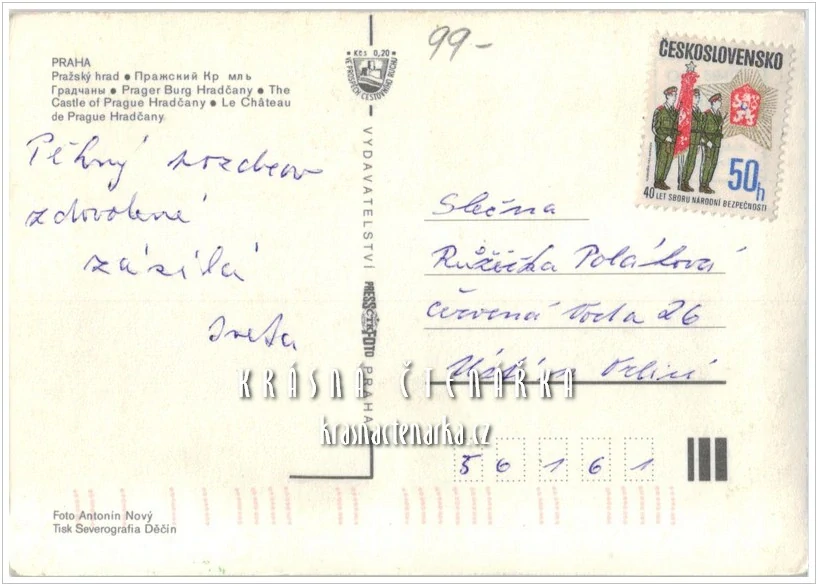 99-
Kčs 0,20
VE PROSPĚCH CESTOVNÍHO RUCHU
ČESKOSLOVENSKO
50h
40 LET SBORU NÁRODNÍ BEZPEČNOSTI
PRAHA
Pražský hrad ● Пражский Кр мль
Градчаны ● Prager Burg Hradčany ● The
Castle of Prague Hradčany ● Le Château
de Prague Hradčany.
Pěkný pozdrav
z dovolené
zasílá
Iveta
VYDAVATELSTVÍ PRESSFOTO PRAHA
ČTK
Slečna
Růžička Poláková
Červená Voda 26
Ústí n. Orlicí
KRÁSNÁ ČTENÁŘKA
krasnactenarka.cz
56161
Foto Antonín Nový
Tisk Severografia Děčín